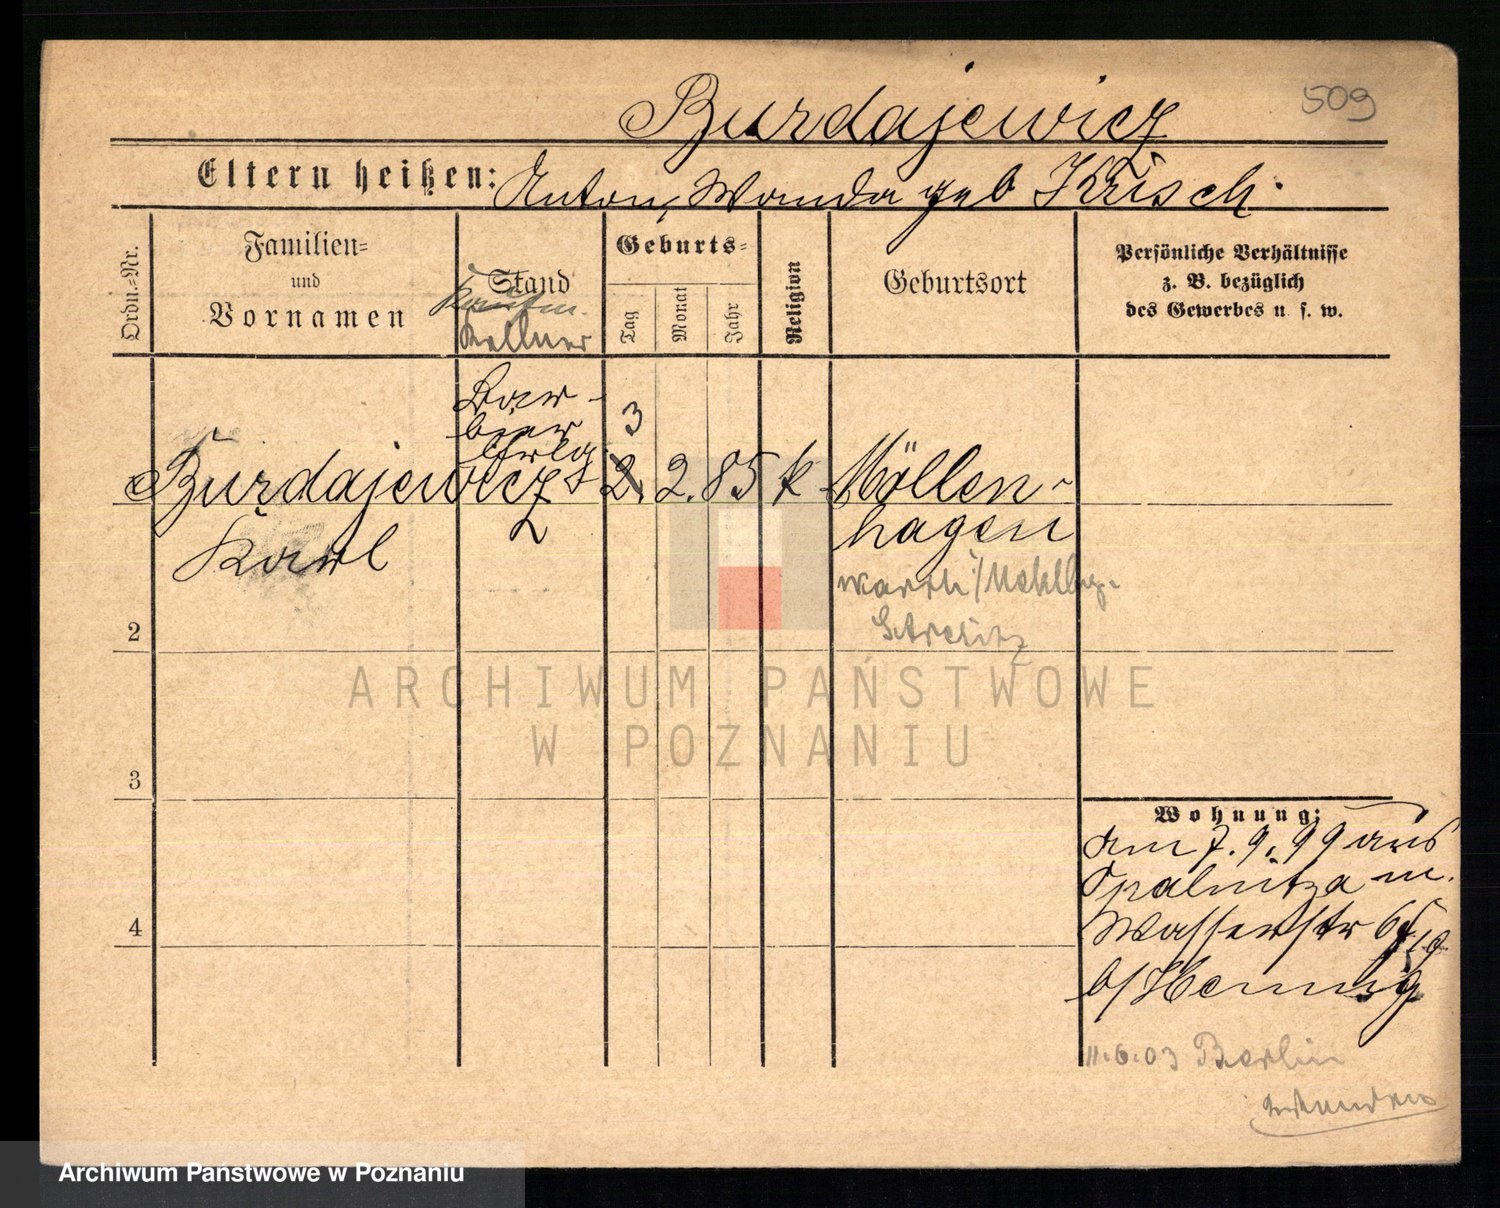 Burdajewicz
509
Eltern heißen: Anton, Wanda geb Krisch.
Ordn.-Nr.
Familien-
und
Vornamen
Stand
Kaufm.
Kellner
Geburts-
Tag
Monat
Jahr
Religion
Geburtsort
Persönliche Verhältnisse
z. B. bezüglich
des Gewerbes u. s. w.
Bar-
bier
lehrlg.
3
Burdajewicz 2. 2. 85 k Möllen-
Karl
hagen
Meklbg.
Strelitz
2
3
4
Wohnung:
am 7.9.99 aus
Opalenitza n.
Wasserstr
b/Hennig
11.6.03 Berlin
ARCHIWUM PAŃSTWOWE
W POZNANIU
Archiwum Państwowe w Poznaniu